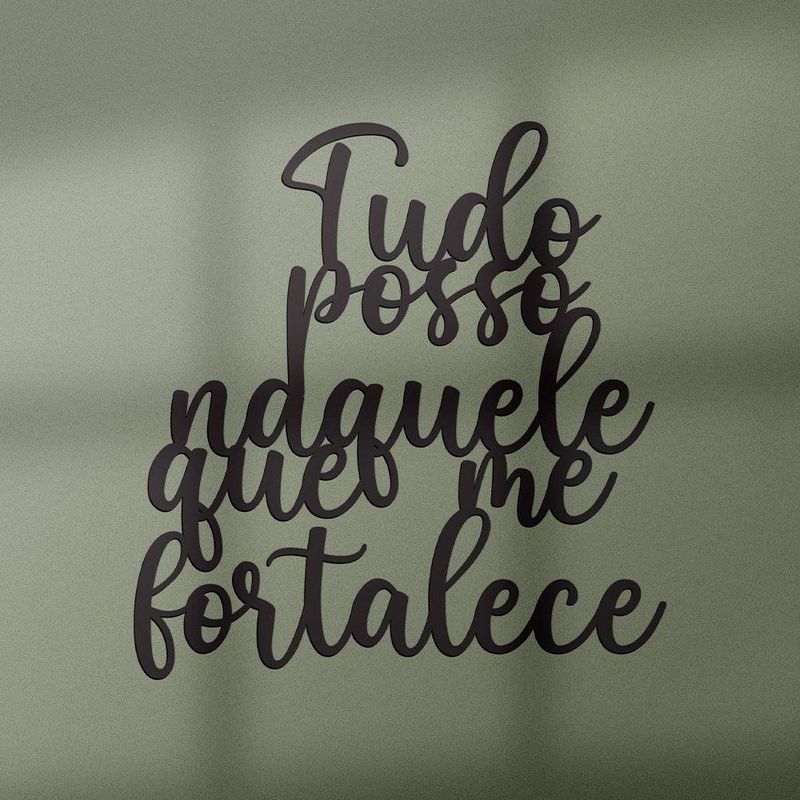 Tudo
posso
naquele
que me
fortalece